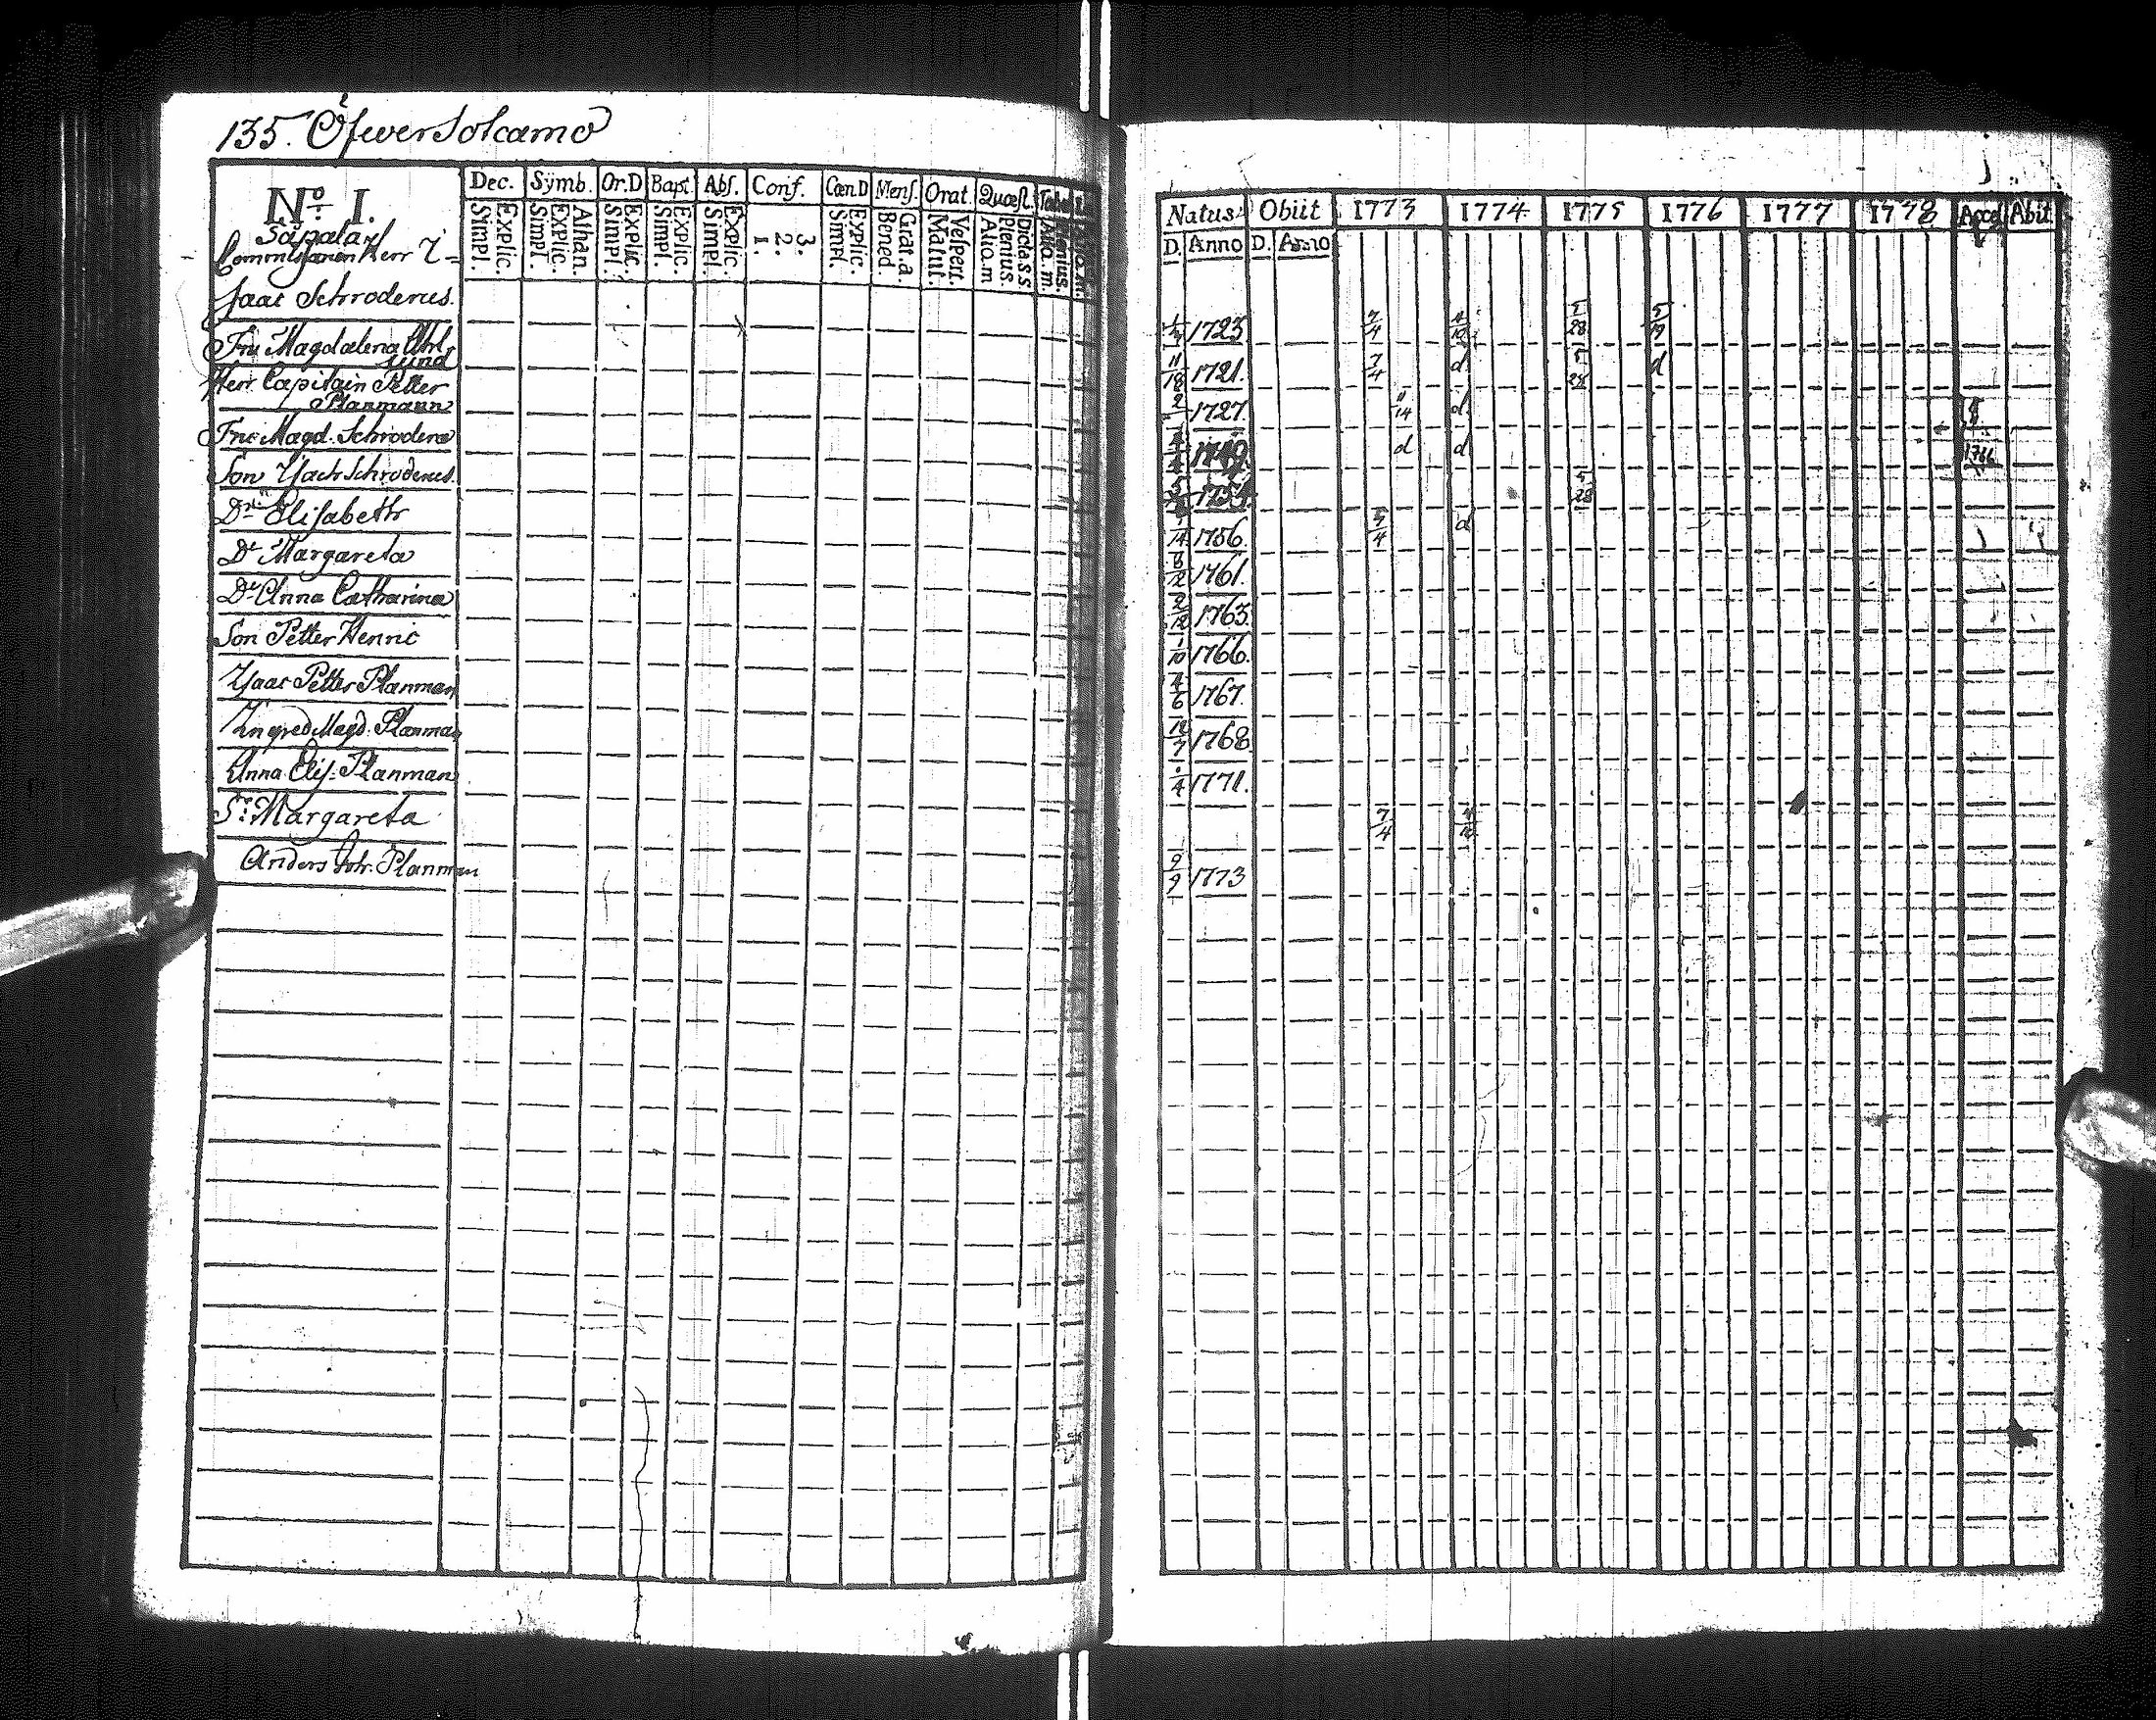 135. Öfwer Solcamo
No. I.
Säpälax
Commissarien Herr I=
saac Schroderus.
Fru Magdalena Uhl
Herr Capitain Petter
Planmann
Fru Magd. Schrodera
Son Isach Schroderus.
Elisabeth
Dr Margareta
Dr Anna Catharina
Son Petter Henric
Isaac Petter Planman
Ingred Magd. Planman
Anna Elis: Planman
Margareta
Anders Joh. Planman
Dec. Symb. Or.D Bapt. Abs. Conf. Cœn.D Mens. Orat. Quæst.
Simpl. Explic. Simpl. Explic. Athan. Simpl. Explic. Simpl. Explic. Simpl. Explic. 1. 2. 3. Simpl. Explic. Bened. Grat.a Matut. Vespert. Aliq.m Plenius.
Natus Obiit 1773 1774 1775 1776 1777 1778 Acceſ Abit
D. Anno D. Anno
1723. 7/4 4/10 5/28
11/18 1721. 7/4 d 5/28 d
1727. 11/14 d
1749. d d 1766
1754. 5/28
1756. d
1761.
1763.
1/10 1766.
4/6 1767.
1768.
1771.
7/4 4/10
9/9 1773